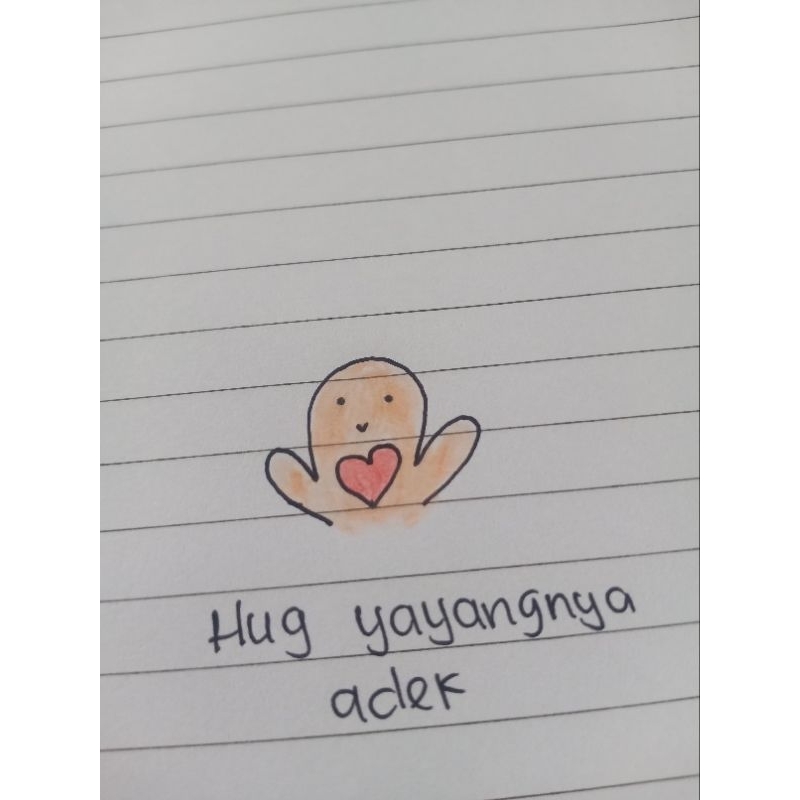 Hug yayangnya
adek